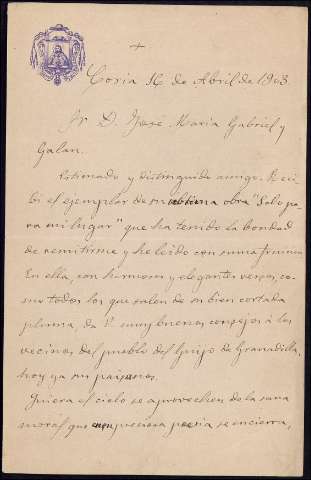 +
Coria 16 de Abril de 1903
Sr. D. José María Gabriel y
Galan.
Estimado y distinguido amigo: Reci-
bí el ejemplar de su ultima obra "Solo pa-
ra mi lugar" que ha tenido la bondad
de remitirme y he leido con suma fruición
En ella, con hermosos y elegantes versos, co-
mo todos los que salen de su bien cortada
pluma, da V. muy buenos consejos á los
vecinos del pueblo del Guijo de Granadilla,
hoy ya sus paisanos.
Quiera el cielo se aprovechen de la sana
moral que en preciosa poesia se encierra,